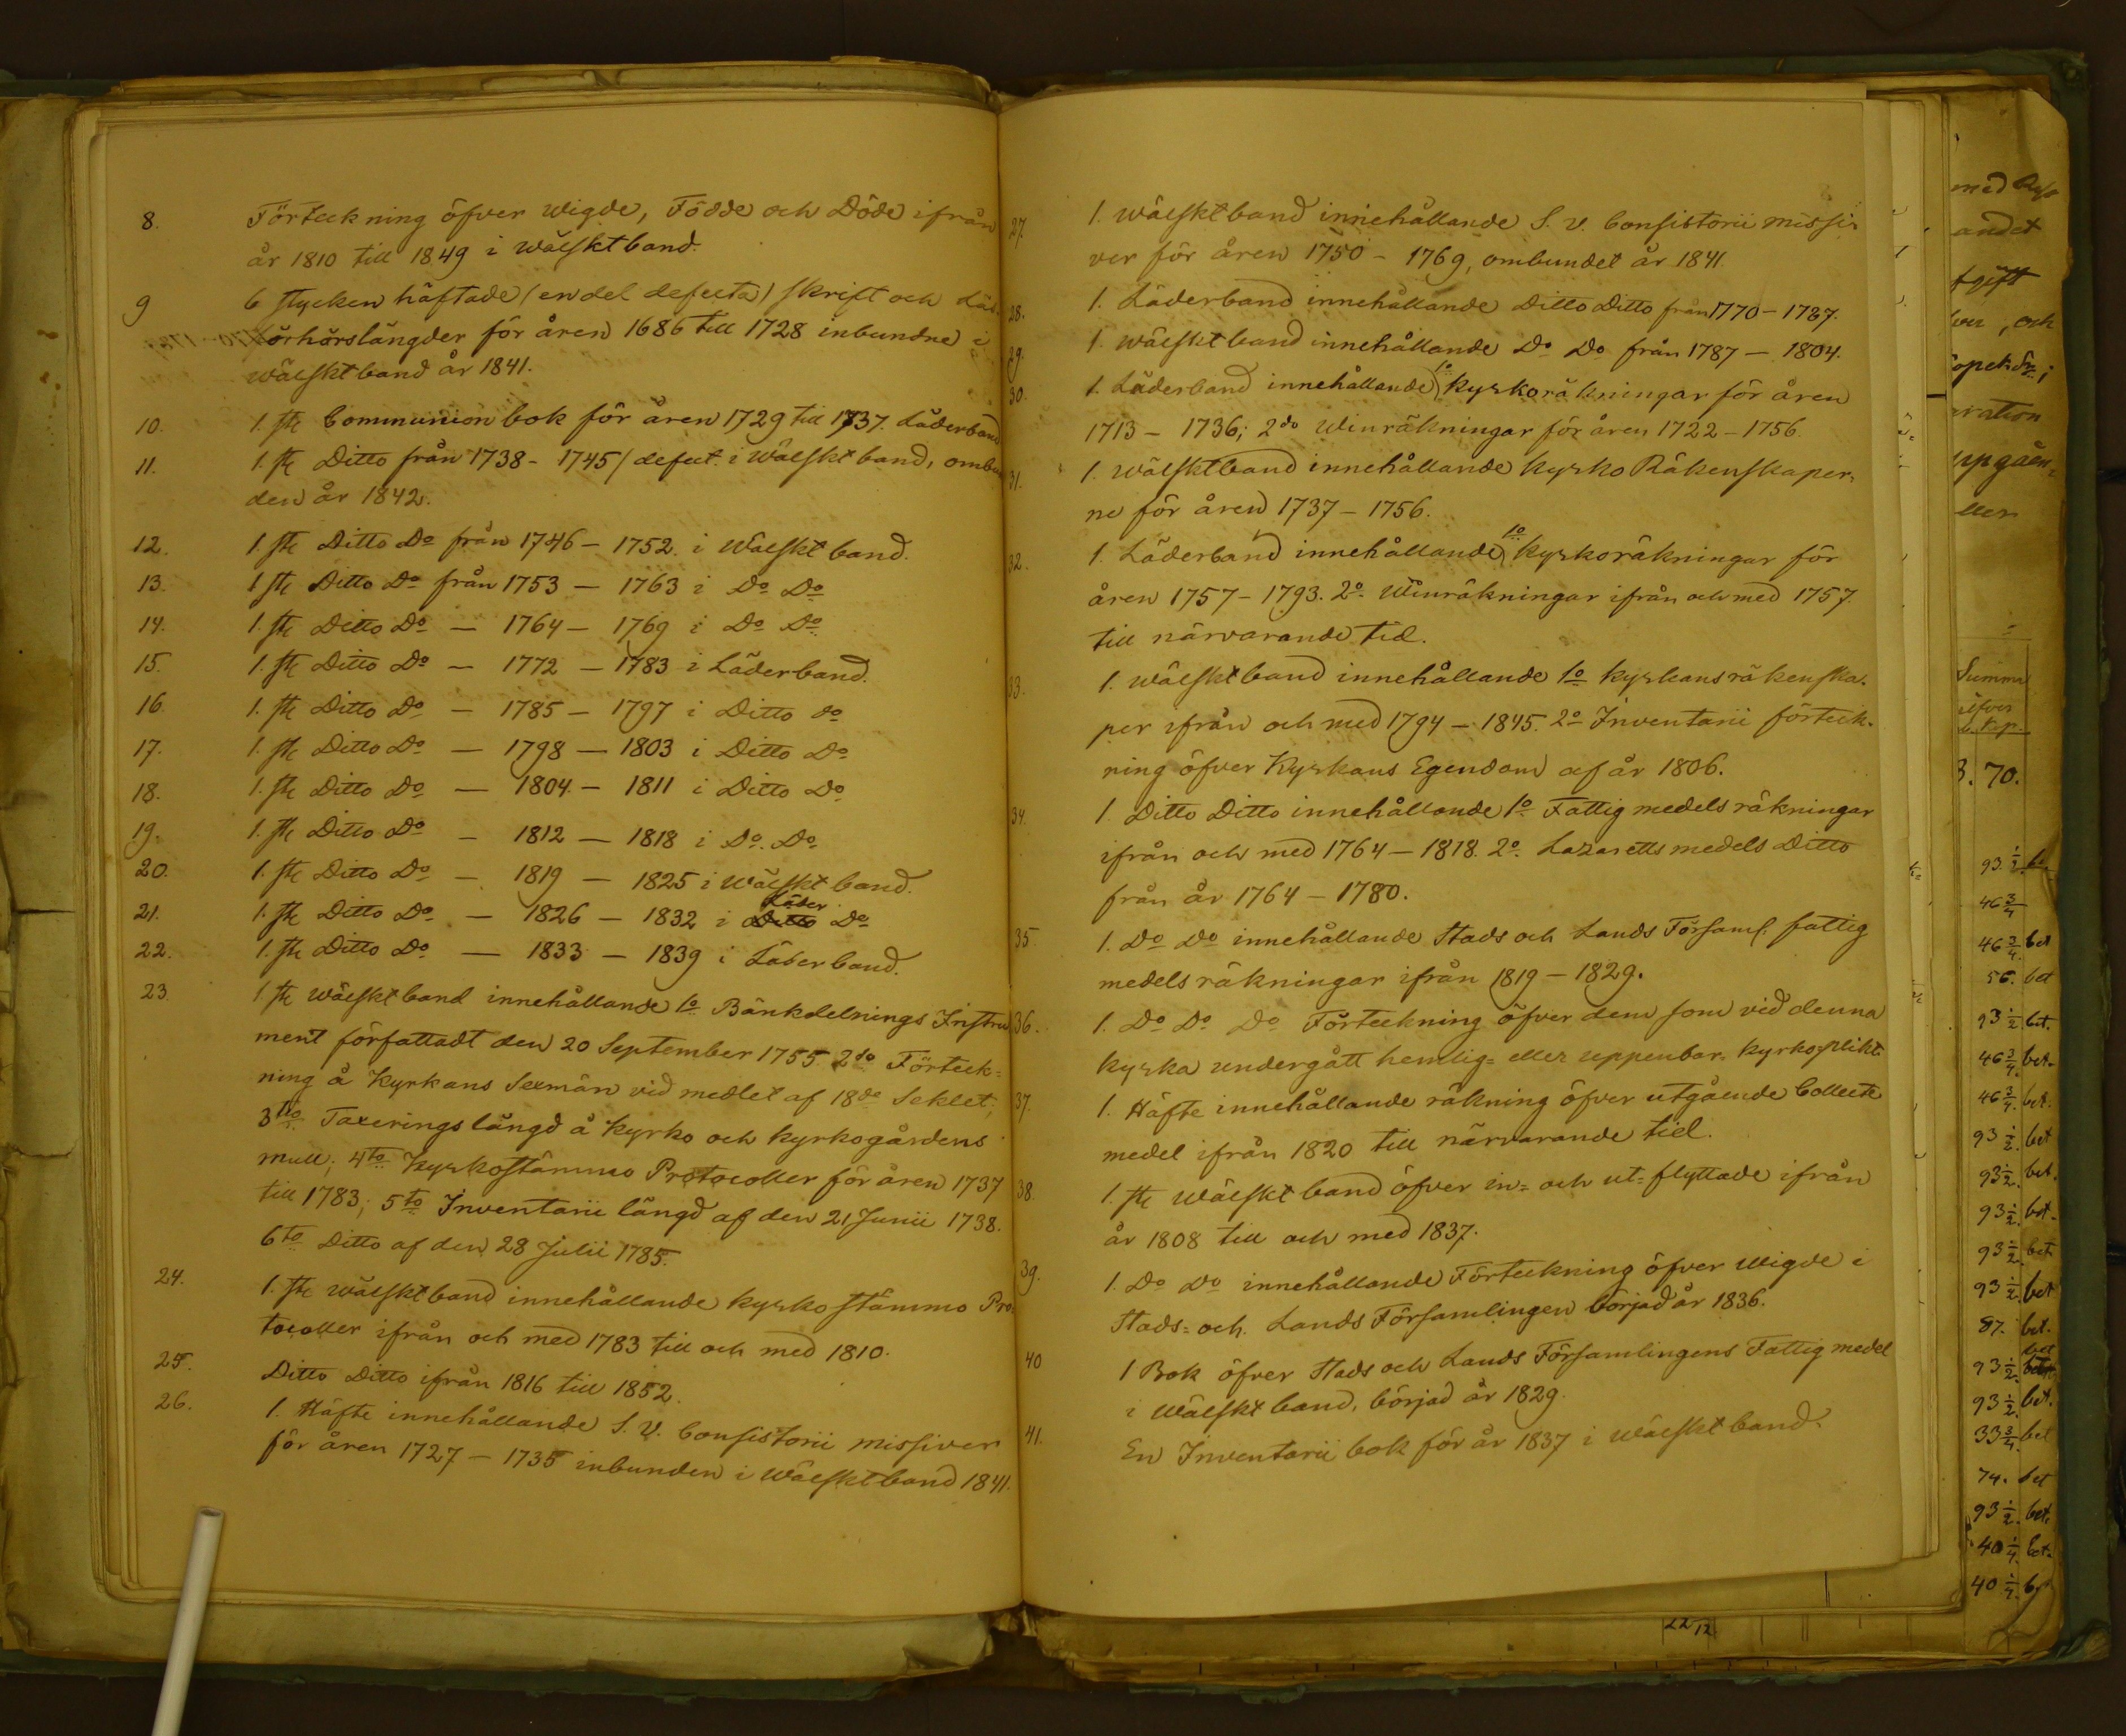 8. Förteckning öfver Wigde, Födde och Döde ifrån
år 1810 till 1849 i wälsktband.
9 6 stycken häftade (en del defecta) skrift och Läs-
förhörslängder för åren 1686 till 1728 inbundne i
wälsktband år 1841.
10. 1. st Communion bok för åren 1729 till 1737. Läderband
11. 1. st Ditto från 1738 - 1745 / defect. i Wälsktband, ombun
den år 1842.
12. 1. st Ditto Do från 1746 - 1752. i Wälsktband.
13. 1 st Ditto Do från 1753 - 1763 i Do Do
14. 1. st Ditto Do - 1764 - 1769 i Do Do
15. 1. st Ditto Do - 1772 - 1783 i Läderband.
16. 1. st Ditto Do - 1785 - 1797 i Ditto do
17. 1. st Ditto Do - 1798 - 1803 i Ditto Do
18. 1. st Ditto Do - 1804 - 1811 i Ditto Do
19. 1. st Ditto Do - 1812 - 1818 i Do. Do
20. 1. st Ditto Do - 1819 - 1825 i Wälsktband.
21. 1. st Ditto Do - 1826 - 1832 i Läder Do
22. 1. st Ditto Do - 1833 - 1839 i Läderband.
23. 1 st wälsktband innehållande 1o Bänkdelnings Instru
ment författadt den 20 September 1755. 2do Förteck=
ning å Kyrkans Sexmän vid medlet af 18de Seklet;
3tio Taxeringslängd å Kyrko och Kyrkogårdens
mull; 4to Kyrkostämmo Protocoller för åren 1737
till 1783; 5to Inventarii längd af den 21 Junii 1738.
6to Ditto af den 28 Julii 1785.
24. 1. st wälsktband innehållande Kyrkostämmo Pro-
tocoller ifrån och med 1783 till och med 1810.
25. Ditto Ditto ifrån 1816 till 1852.
26. 1. Häfte innehållande S. V. Consistorii missiver
för åren 1727 - 1735 inbunden i Wälsktband 1841.
27. 1. wälsktband innehållande S. V. Consistorii missi-
ver för åren 1750 - 1769, ombundet år 1841.
28. 1. Läderband innehållande Ditto Ditto från 1770 - 1787.
29. 1. wälsktband innehållande Do Do från 1787 - 1804.
30. 1. Läderband innehållande 1o Kyrkoräkningar för åren
1713 - 1736; 2do Winräkningar för åren 1722 - 1756.
31. 1. wälsktband innehållande Kyrko Räkenskaper-
ne för åren 1737 - 1756.
32. 1. Läderband innehållande 1o Kyrkoräkningar för
åren 1757 - 1793. 2o Winräkningar ifrån och med 1757.
till närvarande tid.
33. 1. wälsktband innehållande 1o Kyrkans räkenska-
per ifrån och med 1794 - 1845. 2o Inventarii förteck-
ning öfver Kyrkans Egendom af år 1806.
34. 1. Ditto Ditto innehållande 1o Fattigmedels räkningar
ifrån och med 1764 - 1818. 2o. Lazaretts medels Ditto
från år 1764 - 1780.
35 1. Do Do innehållande Stads och Lands Församl. fattig
medels räkningar ifrån 1819 - 1829.
36. 1. Do Do Do Förteckning öfver dem som vid denna
Kyrka undergått hemlig= eller uppenbar- Kyrkoplikt.
37. 1. Häfte innehållande räkning öfver utgående Collect
medel ifrån 1820 till närvarande tid.
38 1. st Wälsktband öfver in= och ut=flyttade ifrån
år 1808 till och med 1837.
39. 1. Do Do innehållande Förteckning öfver Wigde i
Stads= och Lands Församlingen börjad år 1836.
40 1 Bok öfver Stads och Lands Församlingens Fattigmedel
i Wälsktband, börjad år 1829.
41. En Inventarii bok för år 1837 i wälsktband.
med
andet
och
ration
Summa
3. 70.
93 1/2
46 3/4
46 3/4 bet
56. bet
93 1/2 bet.
46 3/4. bet.
46 3/4. bet.
93 1/2. bet
93 1/2. bet.
93 1/2. bet.
93 1/2. bet
93 1/2. bet
87. bet.
93 1/2. bet
93 1/2. bet.
33 3/4. bet
74. bet
93 1/2. bet.
40 1/4. bet.
40 1/4.
22/12.